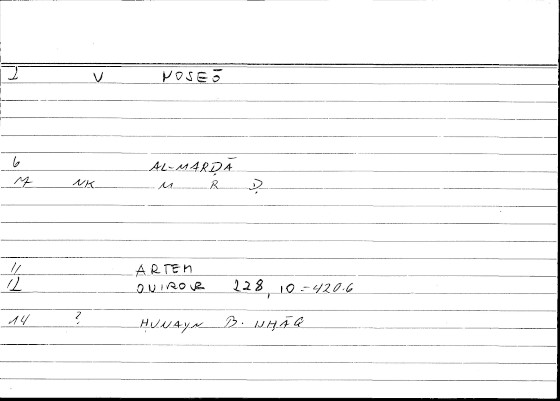 2 V NOSEŌ
6 AL-MARḌĀ
17 NK M R Ḍ
11 ARTEM
12 ONIROCR 228, 10-420.6
14 ? ḤUNAYN B.